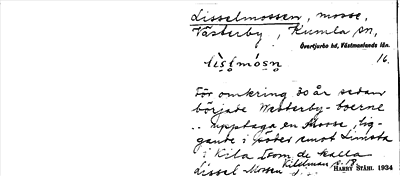 Lisselmossen, mosse,
Västerby, Kumla sn,
Övertjurbo hd, Västmanlands län.
16.
För omkring 30 år sedan
började Westerby-boerne
.. upptaga en Mosse, lig-
gande i söder emot Limsta
i Kila Som de kalla
Lissel Mossen
HARRY STÅHL 1934